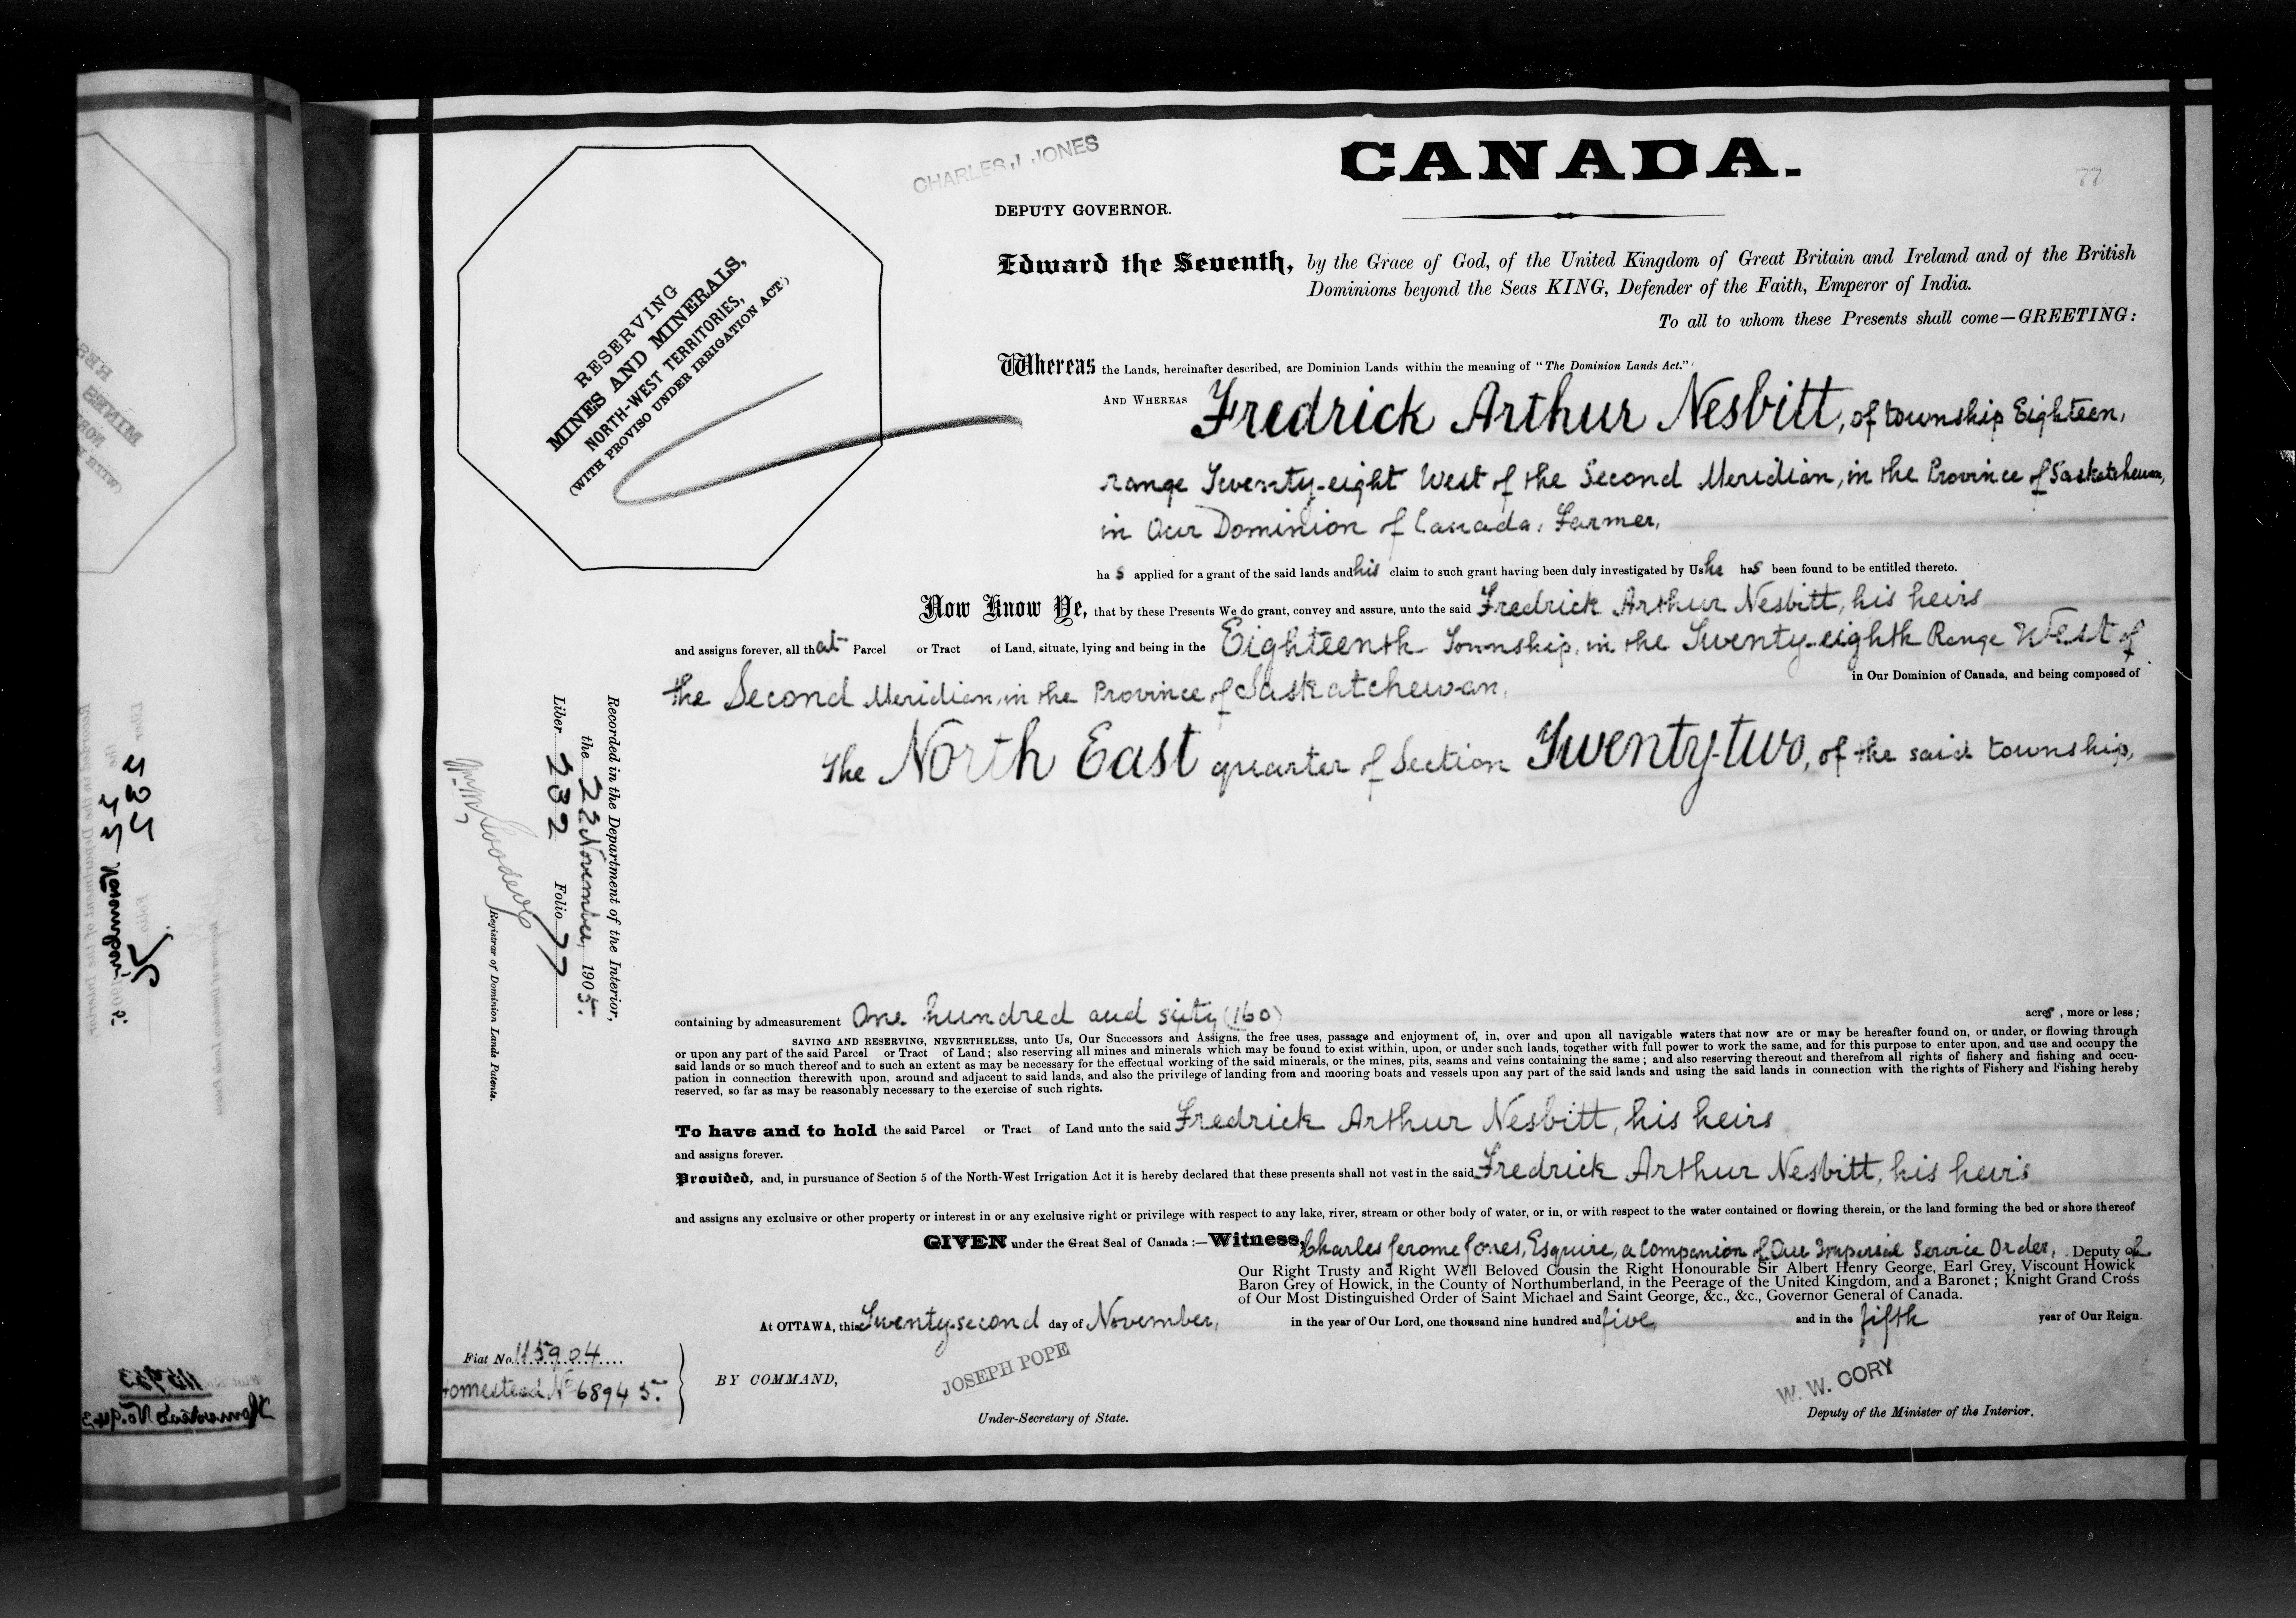 CHARLES J. JONES
CANADA.
77
DEPUTY GOVERNOR.
RESERVING
MINES AND MINERALS,
NORTH-WEST TERRITORIES,
(WITH PROVISO UNDER IRRIGATION ACT)
Edward the Seventh, by the Grace of God, of the United Kingdom of Great Britain and Ireland and of the British
Dominions beyond the Seas KING, Defender of the Faith, Emperor of India.
To all to whom these Presents shall come—GREETING:
Whereas the Lands, hereinafter described, are Dominion Lands within the meaning of "The Dominion Lands Act."
AND WHEREAS Fredrick Arthur Nesbitt, of township Eighteen,
range Twenty-eight West of the Second Meridian, in the Province of Saskatchewan,
in Our Dominion of Canada, Farmer,
has applied for a grant of the said lands and his claim to such grant having been duly investigated by Us he has been found to be entitled thereto.
Now Know Ye, that by these Presents We do grant, convey and assure, unto the said Fredrick Arthur Nesbitt, his heirs
and assigns forever, all that Parcel or Tract of Land, situate, lying and being in the Eighteenth Township, in the Twenty-eighth Range West of
the Second Meridian, in the Province of Saskatchewan, in Our Dominion of Canada, and being composed of
The North East quarter of Section Twenty-two, of the said township,
Recorded in the Department of the Interior,
the 22 November, 1905.
Liber 232 Folio 77
Registrar of Dominion Lands Patents.
containing by admeasurement One hundred and sixty (160) acres, more or less;
SAVING AND RESERVING, NEVERTHELESS, unto Us, Our Successors and Assigns, the free uses, passage and enjoyment of, in, over and upon all navigable waters that now are or may be hereafter found on, or under, or flowing through
or upon any part of the said Parcel or Tract of Land; also reserving all mines and minerals which may be found to exist within, upon, or under such lands, together with full power to work the same, and for this purpose to enter upon, and use and occupy the
said lands or so much thereof and to such an extent as may be necessary for the effectual working of the said minerals, or the mines, pits, seams and veins containing the same; and also reserving thereout and therefrom all rights of fishery and fishing and occu-
pation in connection therewith upon, around and adjacent to said lands, and also the privilege of landing from and mooring boats and vessels upon any part of the said lands and using the said lands in connection with the rights of Fishery and Fishing hereby
reserved, so far as may be reasonably necessary to the exercise of such rights.
To have and to hold the said Parcel or Tract of Land unto the said Fredrick Arthur Nesbitt, his heirs
and assigns forever.
Provided, and, in pursuance of Section 5 of the North-West Irrigation Act it is hereby declared that these presents shall not vest in the said Fredrick Arthur Nesbitt, his heirs
and assigns any exclusive or other property or interest in or any exclusive right or privilege with respect to any lake, river, stream or other body of water, or in, or with respect to the water contained or flowing therein, or the land forming the bed or shore thereof
GIVEN under the Great Seal of Canada:—Witness, Charles Jerome Jones, Esquire, a Companion of Our Imperial Service Order, Deputy of
Our Right Trusty and Right Well Beloved Cousin the Right Honourable Sir Albert Henry George, Earl Grey, Viscount Howick
Baron Grey of Howick, in the County of Northumberland, in the Peerage of the United Kingdom, and a Baronet; Knight Grand Cross
of Our Most Distinguished Order of Saint Michael and Saint George, &c., &c., Governor General of Canada.
At OTTAWA, this Twenty-second day of November, in the year of Our Lord, one thousand nine hundred and five, and in the fifth year of Our Reign.
Fiat No. 115904
Homestead No 68945.
BY COMMAND,
JOSEPH POPE
Under-Secretary of State.
W. W. CORY
Deputy of the Minister of the Interior.